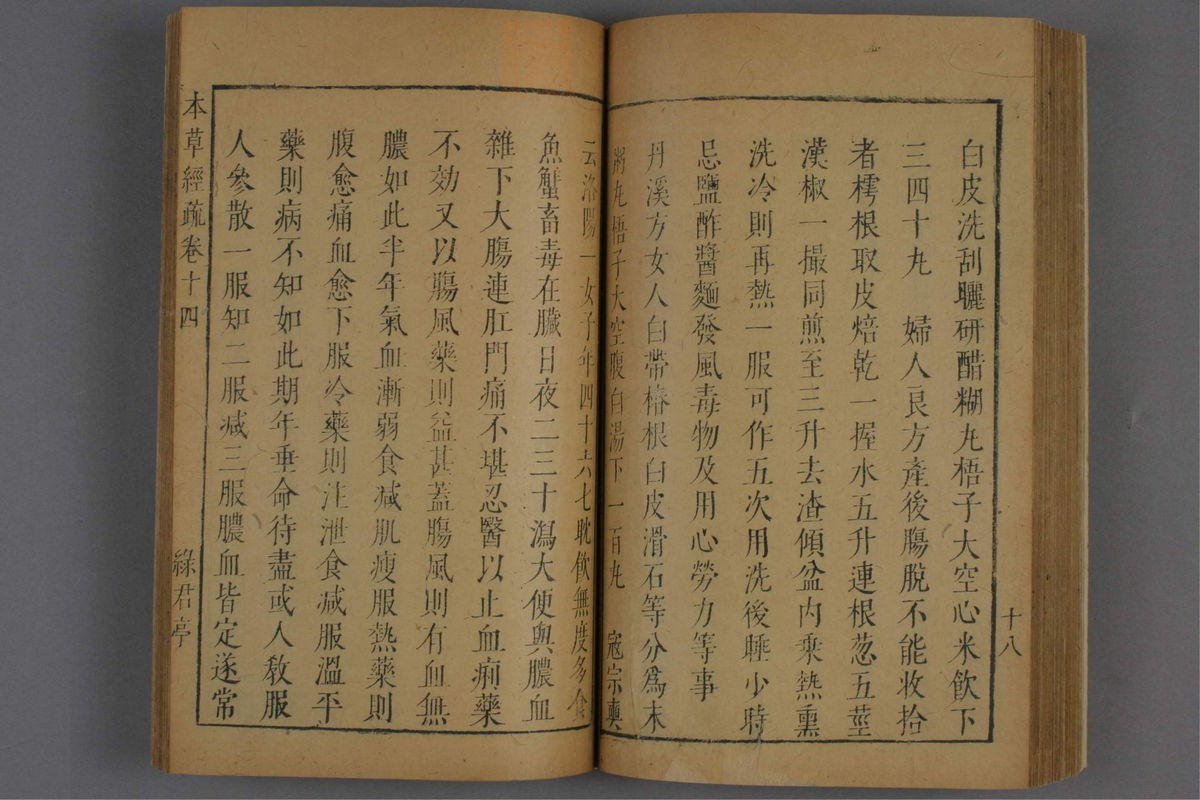 十八
白皮洗刮曬研醋糊丸梧子大空心米飲下
三四十丸　婦人良方產後腸脫不能收拾
者樗根取皮焙乾一握水五升連根葱五莖
漢椒一撮同煎至三升去渣傾盆內乗熱熏
洗冷則再熱一服可作五次用洗後睡少時
忌鹽酢醬麵發風毒物及用心勞力等事
丹溪方女人白帶椿根白皮滑石等分爲末
粥丸梧子大空腹白湯下一百丸　寇宗奭
云洛陽一女子年四十六七耽飲無度多食
魚蟹畜毒在臟日夜二三十瀉大便與膿血
雜下大腸連肛門痛不堪忍醫以止血痢藥
不効又以腸風藥則益甚蓋腸風則有血無
膿如此半年氣血漸弱食减肌瘦服熱藥則
腹愈痛血愈下服冷藥則注泄食减服溫平
藥則病不知如此期年垂命待盡或人敎服
人參散一服知二服减三服膿血皆定遂常
本草經疏卷十四
綠君亭